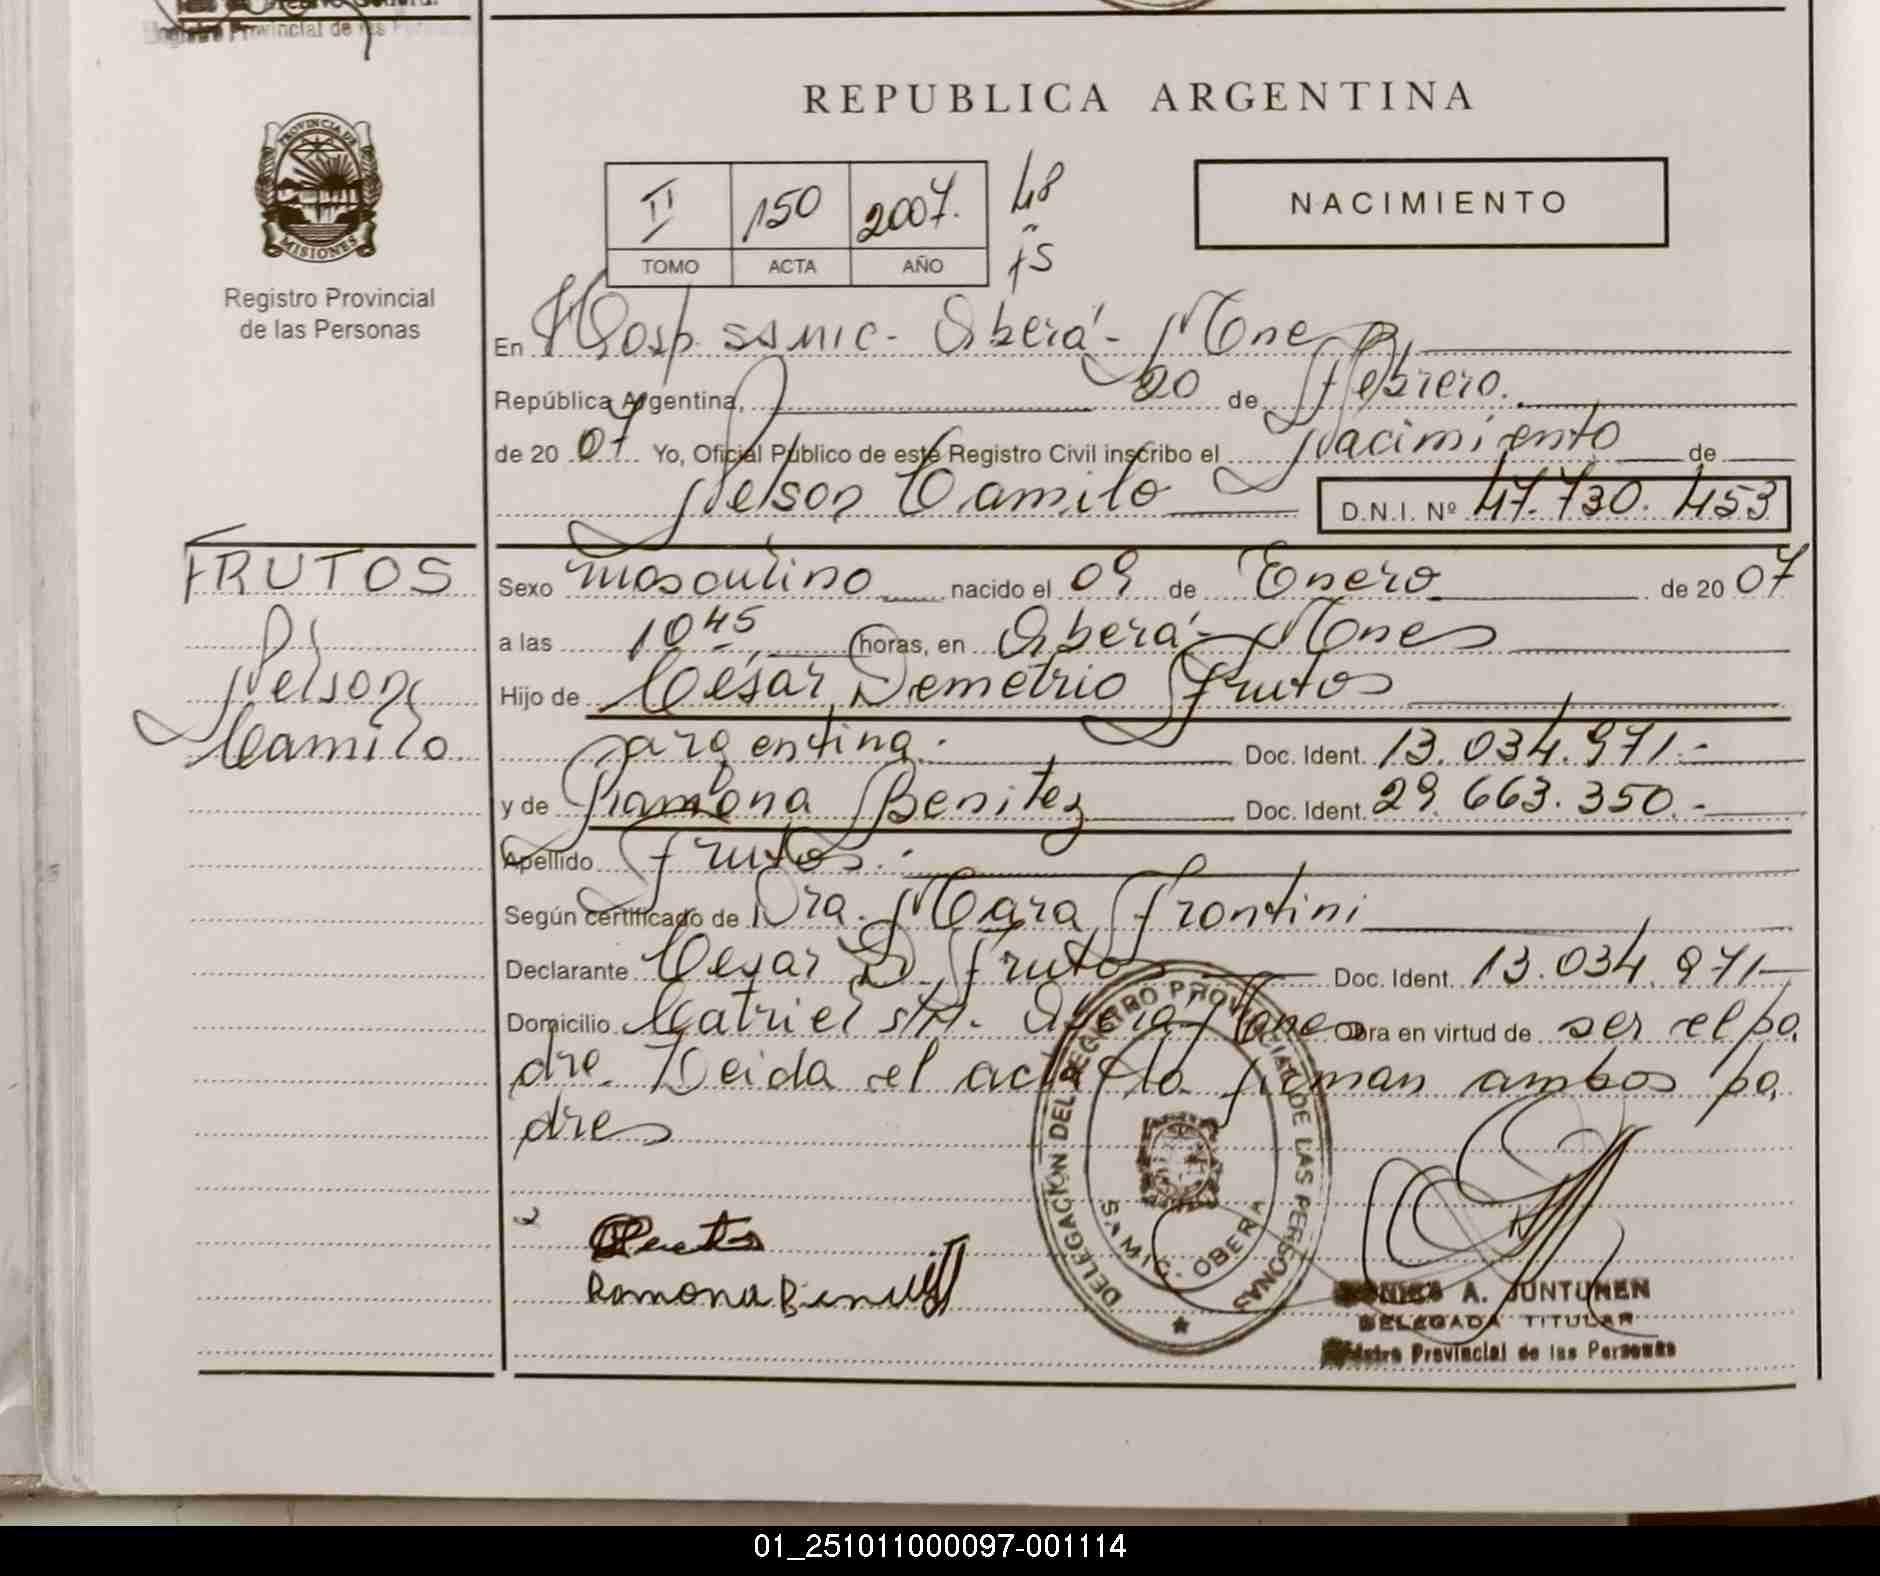 Registro Provincial de las
REPUBLICA ARGENTINA
PROVINCIA DE
MISIONES
Registro Provincial
de las Personas
II 150 2007.
TOMO ACTA AÑO
48
NACIMIENTO
En Hosp. SAMIC - Oberá - Mnes
República Argentina, 20 de Febrero.
de 20 07 Yo, Oficial Público de este Registro Civil inscribo el Nacimiento de
Nelson Camilo D.N.I. Nº 47.730.453
FRUTOS
Nelson
Camilo
Sexo masculino nacido el 09 de Enero de 20 07
a las 10 45 horas, en Oberá - Mnes
Hijo de César Demetrio Frutos
argentina. Doc. Ident. 13.034.971.-
y de Ramona Benitez Doc. Ident. 29.663.350.-
Apellido Frutos.
Según certificado de Dra. Mara Frontini
Declarante Cesar D. Frutos Doc. Ident. 13.034.971
Domicilio Catriel s/n. Oberá - Mnes Obra en virtud de ser el pa
dre. Leida el acta la firman ambos pa
dres
DELEGACION DEL REGISTRO PROVINCIAL DE LAS PERSONAS
SAMIC. OBERA
Ramona
A. JUNTUNEN
DELEGADA TITULAR
Provincial de las Personas
01_251011000097-001114